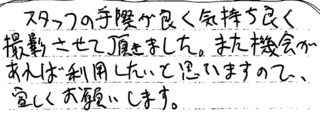 スタッフの手際が良く気持ち良く
撮影させて頂きました。また機会が
あれば利用したいと思いますので、
宜しくお願いします。